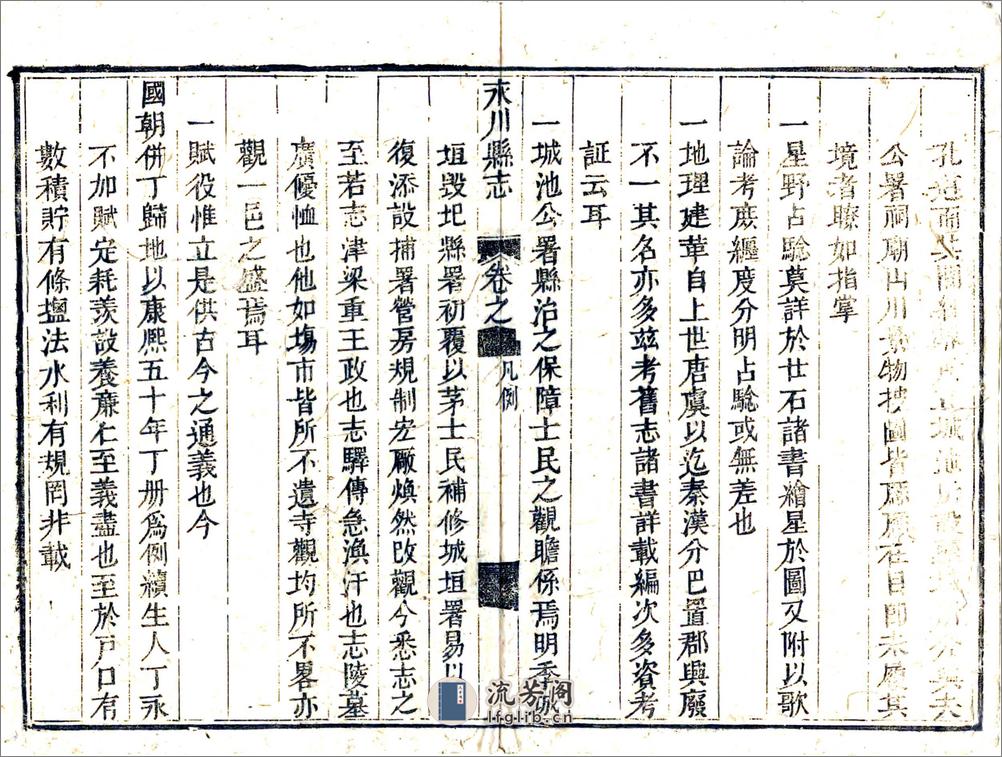 孔
公署祠廟山川景物披圖皆歷歷在目卽未歷其
境者瞭如指掌
一星野占驗莫詳於甘石諸書繪星於圖又附以歌
論考度纏度分明占驗或無差也
一地理建革自上世唐虞以迄秦漢分巴置郡興廢
不一其名亦多茲考舊志諸書詳載編次多資考
証云耳
一城池公署縣治之保障士民之觀瞻係焉明季城
永川縣志 卷之 凡例
垣毀圯縣署初覆以茅士民補修城垣署易以
復添設捕署營房規制宏厰煥然改觀今悉志之
至若志津梁重王政也志驛傳急渙汗也志陵墓
廣優恤也他如塲市皆所不遺寺觀均所不畧亦
觀一邑之盛焉耳
一賦役惟立是供古今之通義也今
國朝併丁歸地以康熙五十年丁册爲例續生人丁永
不加賦定耗羨設養亷仁至義盡也至於戸口有
數積貯有條塩法水利有規罔非載
流芳阁
lfglib.cn